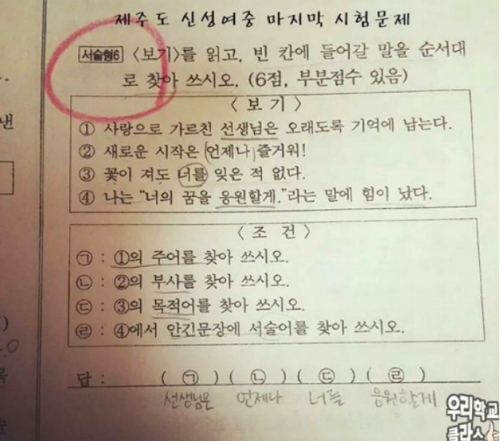 제주도 신성여중 마지막 시험문제
서술형6 〈보기〉를 읽고, 빈 칸에 들어갈 말을 순서대
로 찾아 쓰시오. (6점, 부분점수 있음)
〈 보 기 〉
① 사랑으로 가르친 선생님은 오래도록 기억에 남는다.
② 새로운 시작은 언제나 즐거워!
③ 꽃이 져도 너를 잊은 적 없다.
④ 나는 “너의 꿈을 응원할게.”라는 말에 힘이 났다.
〈 조 건 〉
㉠ : ①의 주어를 찾아 쓰시오.
㉡ : ②의 부사를 찾아 쓰시오.
㉢ : ③의 목적어를 찾아 쓰시오.
㉣ : ④에서 안긴문장에 서술어를 찾아 쓰시오.
답 : ( ㉠ ) ( ㉡ ) ( ㉢ ) ( ㉣ )
선생님은 언제나 너를 응원할게
우리학교